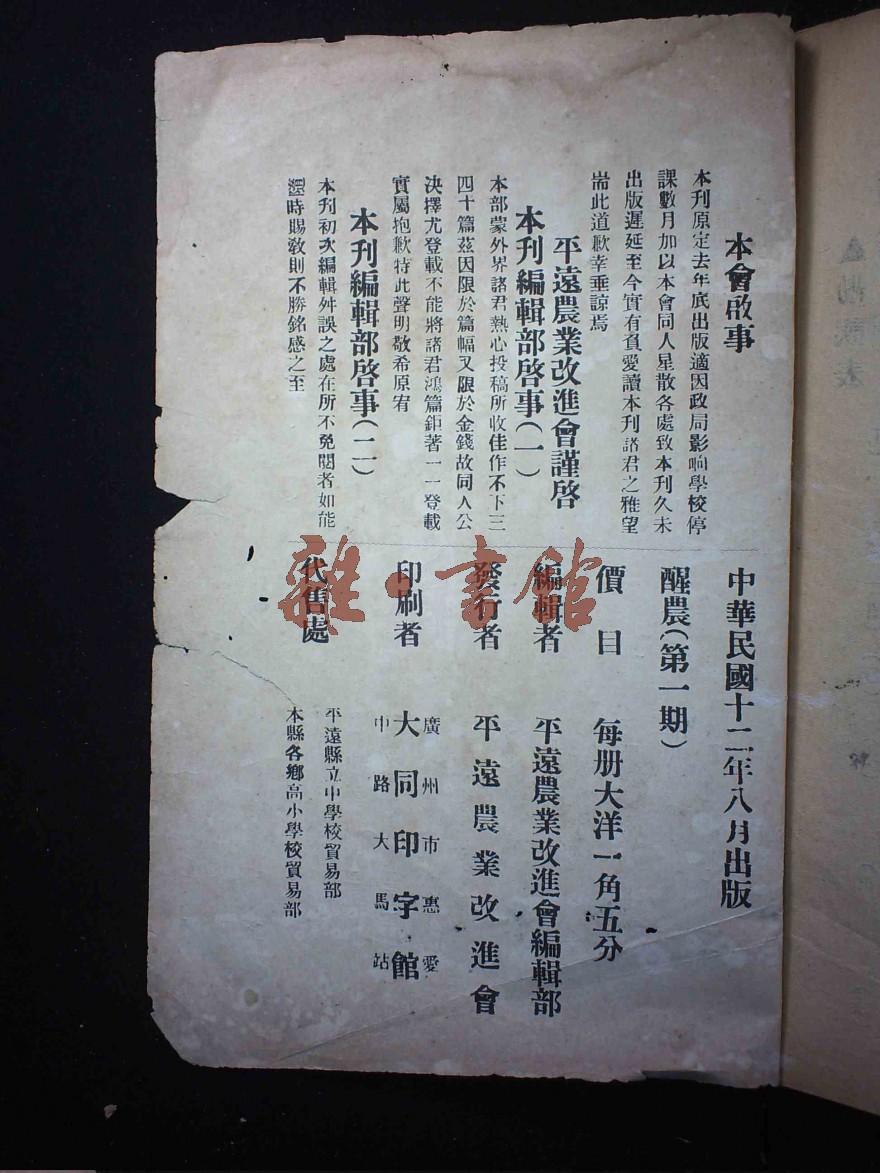 本會啟事
本刊原定去年底出版適因政局影响學校停
課數月加以本會同人星散各處致本刊久未
出版遲延至今實有負愛讀本刊諸君之雅望
耑此道歉幸垂諒焉
平遠農業改進會謹啓
本刊編輯部啓事(一)
本部蒙外界諸君熱心投稿所收佳作不下三
四十篇茲因限於篇幅又限於金錢故同人公
決擇尤登載不能將諸君鴻篇鉅著一一登載
實屬抱歉特此聲明敬希原宥
本刊編輯部啓事(二)
本刊初次編輯舛誤之處在所不免閱者如能
隨時賜敎則不勝銘感之至
中華民國十二年八月出版
醒農(第一期)
價目 每册大洋一角五分
編輯者 平遠農業改進會編輯部
發行者 平遠農業改進會
印刷者 大同印字館
廣州市惠愛
中路大馬站
代售處
平遠縣立中學校貿易部
本縣各鄉高小學校貿易部
雜·書館